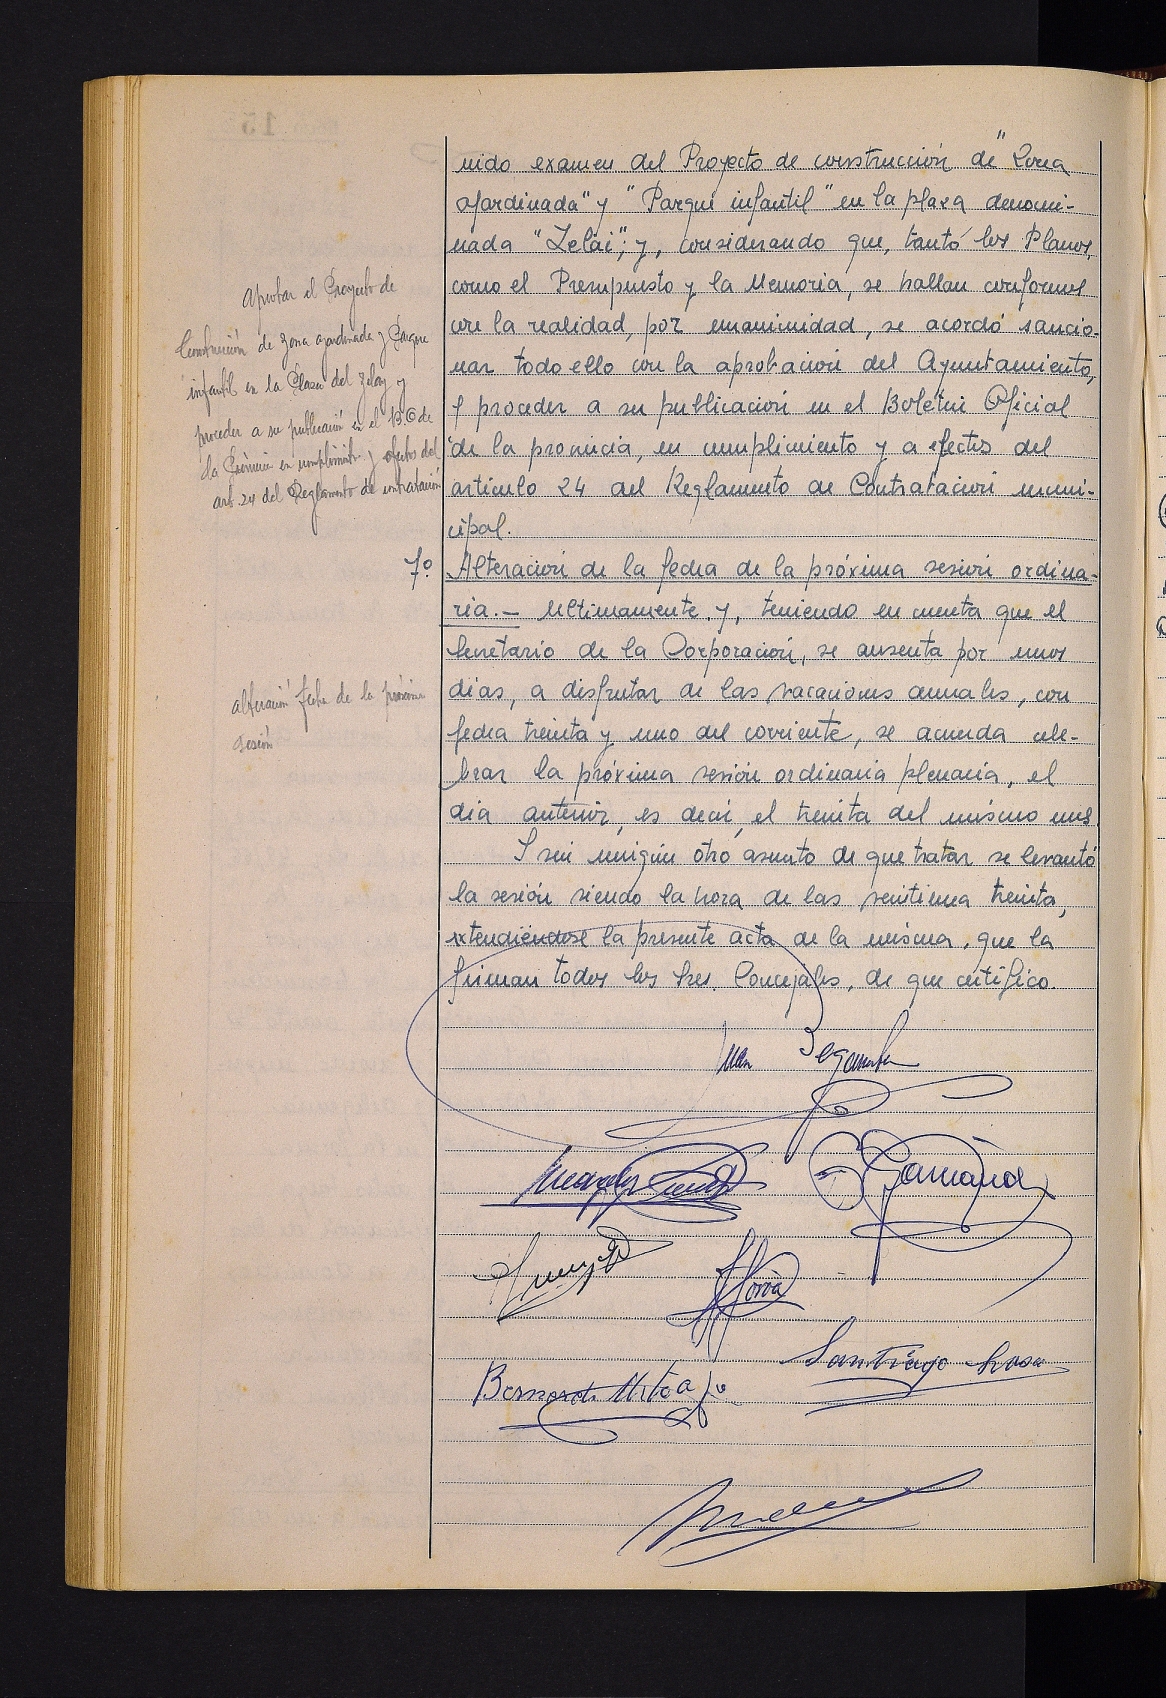 nido examen del Proyecto de construcción de "Zona
ajardinada" y "Parque infantil" en la plaza denomi-
nada "Zelai"; y, considerando que, tanto los Planos,
como el Presupuesto y la Memoria, se hallan conformes
con la realidad, por unanimidad, se acordó sancio-
nar todo ello con la aprobación del Ayuntamiento,
y proceder a su publicación en el Boletin Oficial
de la provincia, en cumplimiento y a efectos del
artículo 24 del Reglamento de Contratación muni-
cipal.
Aprobar el Proyecto de
Construcción de zona ajardinada y Parque
infantil en la Plaza del Zelay y
proceder a su publicación en el B.O de
la Provincia en cumplimiento y efectos del
art. 24 del Reglamento de contratación
7º Alteración de la fecha de la próxima sesión ordina-
ria.- Ultimamente y, teniendo en cuenta que el
Secretario de la Corporación, se ausenta por unos
dias, a disfrutar de las vacaciones anuales, con
fecha treinta y uno del corriente, se acuerda cele-
brar la próxima sesión ordinaria plenaria, el
dia anterior, es decir, el treinta del mismo mes.
alteración fecha de la próxima
sesión
Y sin ningún otro asunto de que tratar se levantó
la sesión siendo la hora de las veintiuna treinta,
extendiéndose la presente acta de la misma, que la
firman todos los Sres. Concejales, de que certifico.
Juan
Santiago
Bernardo